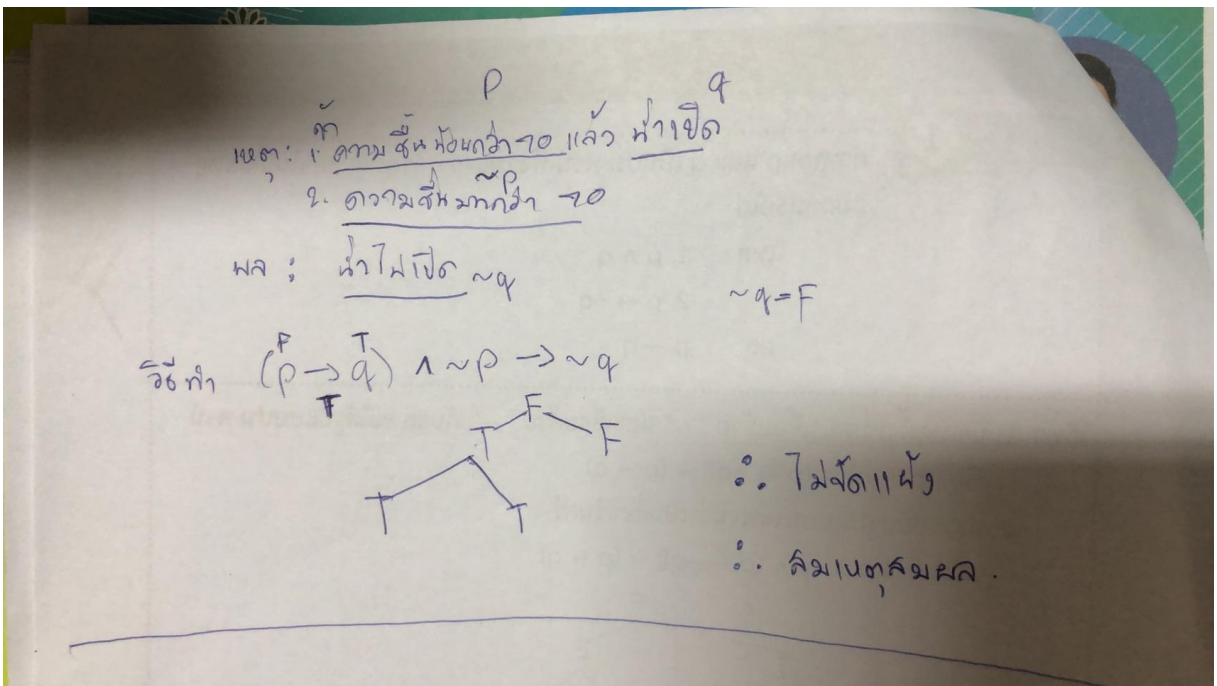 p q
เหตุ: 1. ถ้าความชื้นน้อยกว่า 70 แล้ว น้ำเปิด
~p
2. ความชื้นมากกว่า 70
ผล : น้ำไม่เปิด ~q
~q = F
F T
วิธีทำ (p → q) ∧ ~p → ~q
T F
T F
T T
∴ ไม่ขัดแย้ง
∴ สมเหตุสมผล.